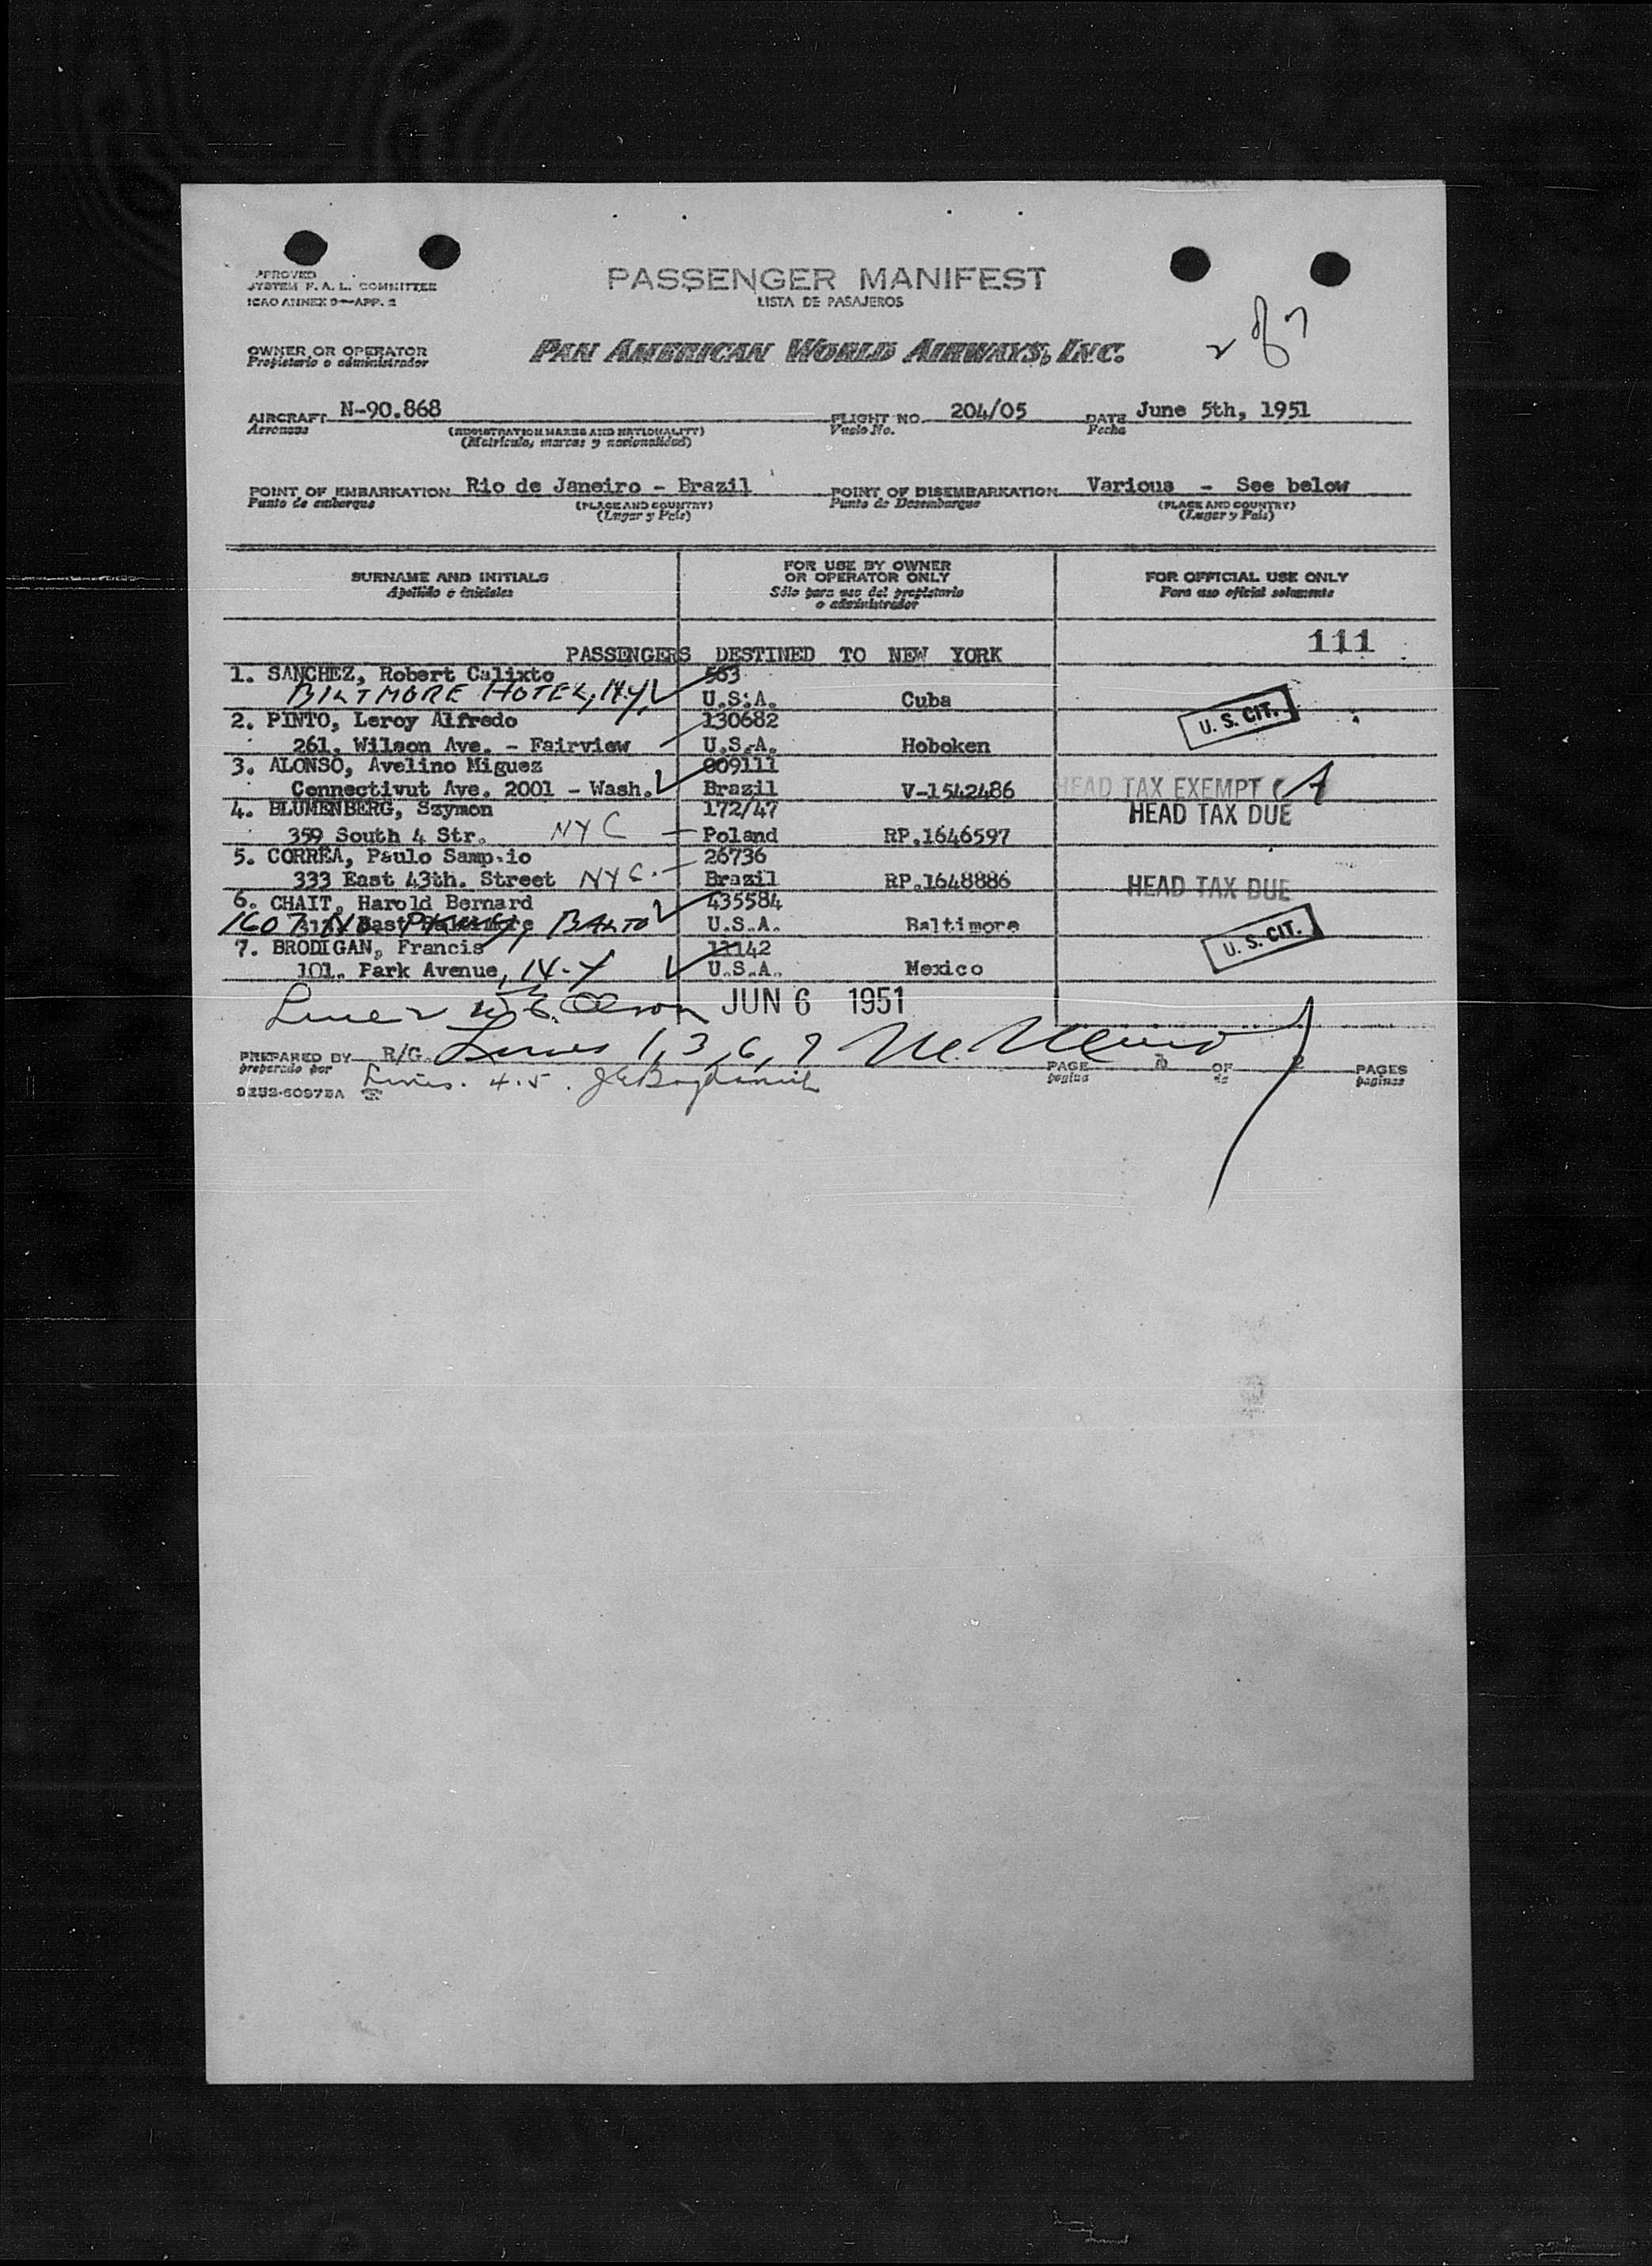 APROVED
SYSTEM F. A. L. COMMITTEE
ICAO ANNEX 9—APP. 2
PASSENGER MANIFEST
LISTA DE PASAJEROS
2 of 7
OWNER OR OPERATOR
Propietario o administrador
PAN AMERICAN WORLD AIRWAYS, INC.
AIRCRAFT N-90.868 FLIGHT NO. 204/05 DATE June 5th, 1951
Aeronave (REGISTRATION MARKS AND NATIONALITY) Vuelo No. Fecha
(Matrícula, marcas y nacionalidad)
POINT OF EMBARKATION Rio de Janeiro - Brazil POINT OF DISEMBARKATION Various - See below
Punto de embarque (PLACE AND COUNTRY) Punto de Desembarque (PLACE AND COUNTRY)
(Lugar y País) (Lugar y País)
SURNAME AND INITIALS
Apellido e iniciales
FOR USE BY OWNER
OR OPERATOR ONLY
Sólo para uso del propietario
o administrador
FOR OFFICIAL USE ONLY
Para uso oficial solamente
111
PASSENGERS DESTINED TO NEW YORK
1. SANCHEZ, Robert Calixto 553
BILTMORE HOTEL, N.Y. U.S.A. Cuba
2. PINTO, Leroy Alfredo 130682 U. S. CIT.
261. Wilson Ave. - Fairview U.S.A. Hoboken
3. ALONSO, Avelino Miguez 009111
Connectivut Ave. 2001 - Wash. Brazil V-1542486 HEAD TAX EXEMPT
4. BLUMENBERG, Szymon 172/47 HEAD TAX DUE
359 South 4 Str. NYC Poland RP.1646597
5. CORRÊA, Paulo Samp.io 26736
333 East 43th. Street NYC. Brazil RP.1648886 HEAD TAX DUE
6. CHAIT, Harold Bernard 435584
1607 East Baltimore BALTO U.S.A. Baltimore U. S. CIT.
7. BRODIGAN, Francis 11142
101. Park Avenue, N.Y U.S.A. Mexico
Line 2 Olson JUN 6 1951
PREPARED BY R/G. Lines 1, 3, 6, 7 PAGE OF 2 PAGES
preparado por Lines. 4.5. pagina de paginas